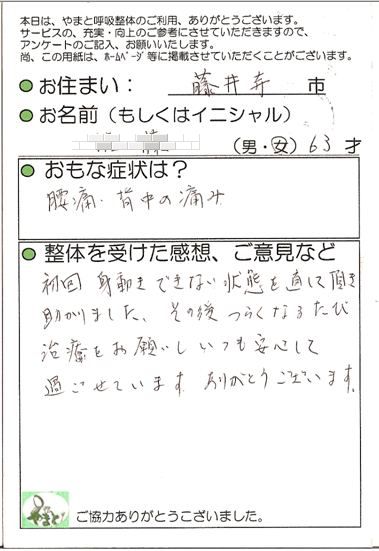 本日は、やまと呼吸整体のご利用、ありがとうございます。
サービスの、充実・向上のご参考にさせていただきますので、
アンケートのご記入、お願いいたします。
尚、この用紙は、ホームページ等に掲載させていただくことがございます。
●お住まい： 藤井寺 市
●お名前（もしくはイニシャル）
（男・女）63 才
●おもな症状は？
腰痛・背中の痛み
●整体を受けた感想、ご意見など
初回 身動きできない状態を直して頂き
助かりました、その後つらくなるたび
治療をお願いしいつも安心して
過ごせています ありがとうございます。
やまと
ご協力ありがとうございました。